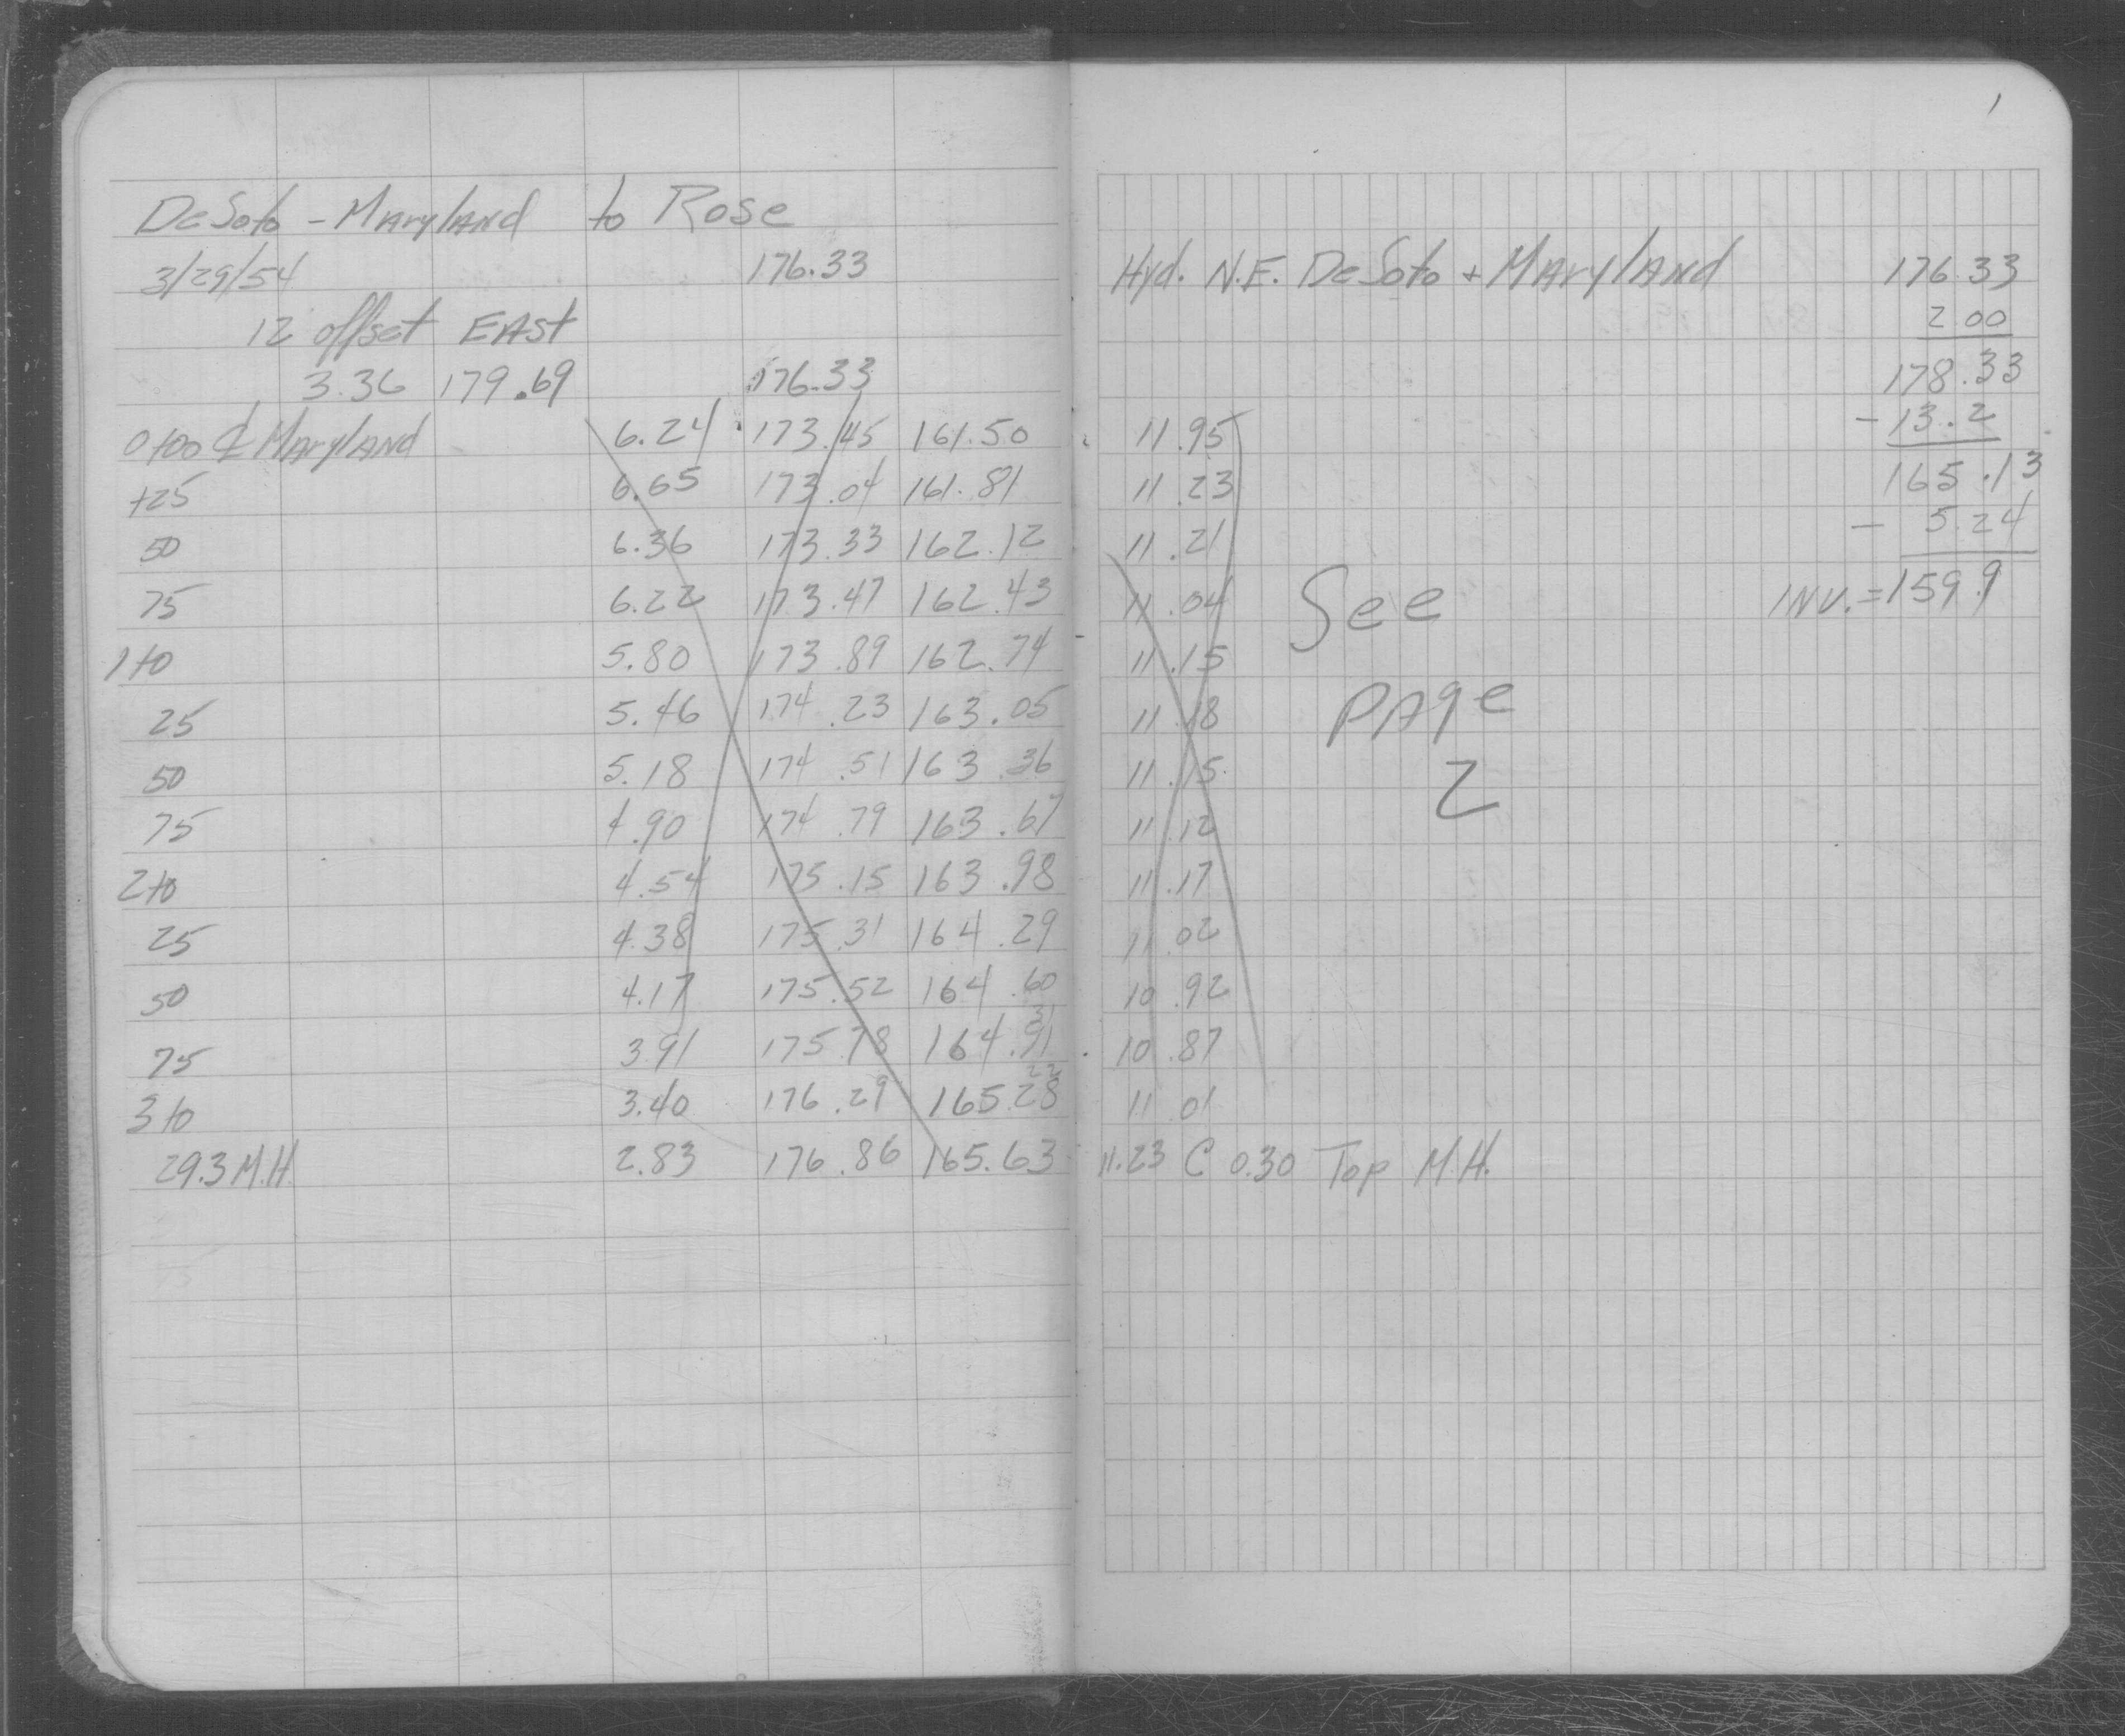 1
DeSoto - Maryland to Rose
3/29/54 176.33
12 offset EAst
3.36 179.69 176.33
0+00 ℄ Maryland 6.24 173.45 161.50 11.95
+25 6.65 173.04 161.81 11.23
50 6.36 173.33 162.12 11.21
75 6.22 173.47 162.43 11.04
1+0 5.80 173.89 162.74 11.15
25 5.46 174.23 163.05 11.18
50 5.18 174.51 163.36 11.15
75 4.90 174.79 163.67 11.12
2+0 4.54 175.15 163.98 11.17
25 4.38 175.31 164.29 11.02
50 4.17 175.52 164.60 10.92
75 3.91 175.78 164.91 10.87
3+0 3.40 176.29 165.28 11.01
29.3 M.H. 2.83 176.86 165.63 11.23 C 0.30 Top M.H.
Hyd. N.E. DeSoto + Maryland 176.33
2 00
178.33
- 13.2
165.13
- 5.24
INV. = 159.9
See
PAge
2